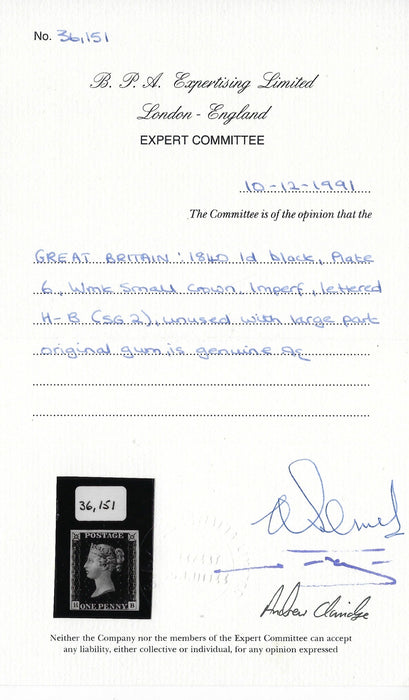 No. 36,151
B. P. A. Expertising Limited
London - England
EXPERT COMMITTEE
10-12-1991
The Committee is of the opinion that the
GREAT BRITAIN: 1840 1d black, Plate
6, Wmk Small Crown, Imperf, lettered
H-B (SG 2), unused with large part
original gum is genuine
36,151
POSTAGE
ONE PENNY
H B
Andrew Claridge
Neither the Company nor the members of the Expert Committee can accept
any liability, either collective or individual, for any opinion expressed